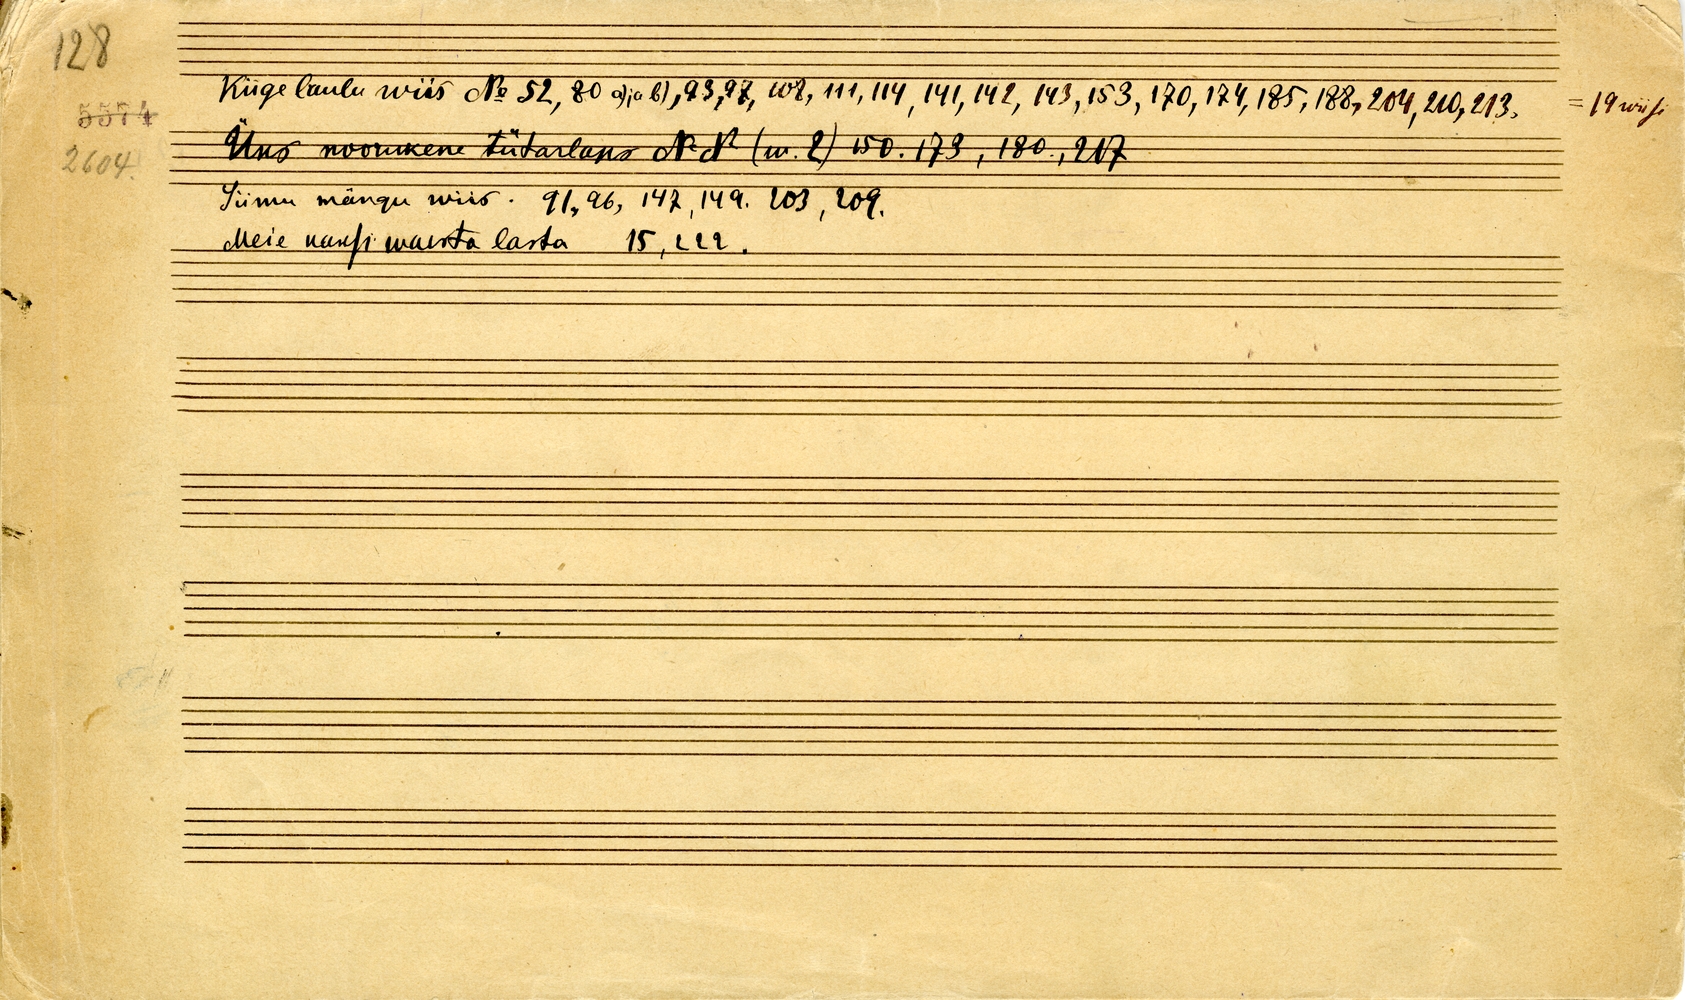 128
5574
2604.
Kiige laulu wiis № 52, 80 a) ja b), 93, 97, 108, 111, 114, 141, 142, 143, 153, 170, 174, 185, 188, 204, 210, 213. = 19 wiisi
Üks noorukene tütarlaps № № (w. 2) 150. 173, 180., 217
Siimu mängu wiis. 91, 96, 147, 149. 203, 209.
Meie kaksi waesta lasta 15, 222.